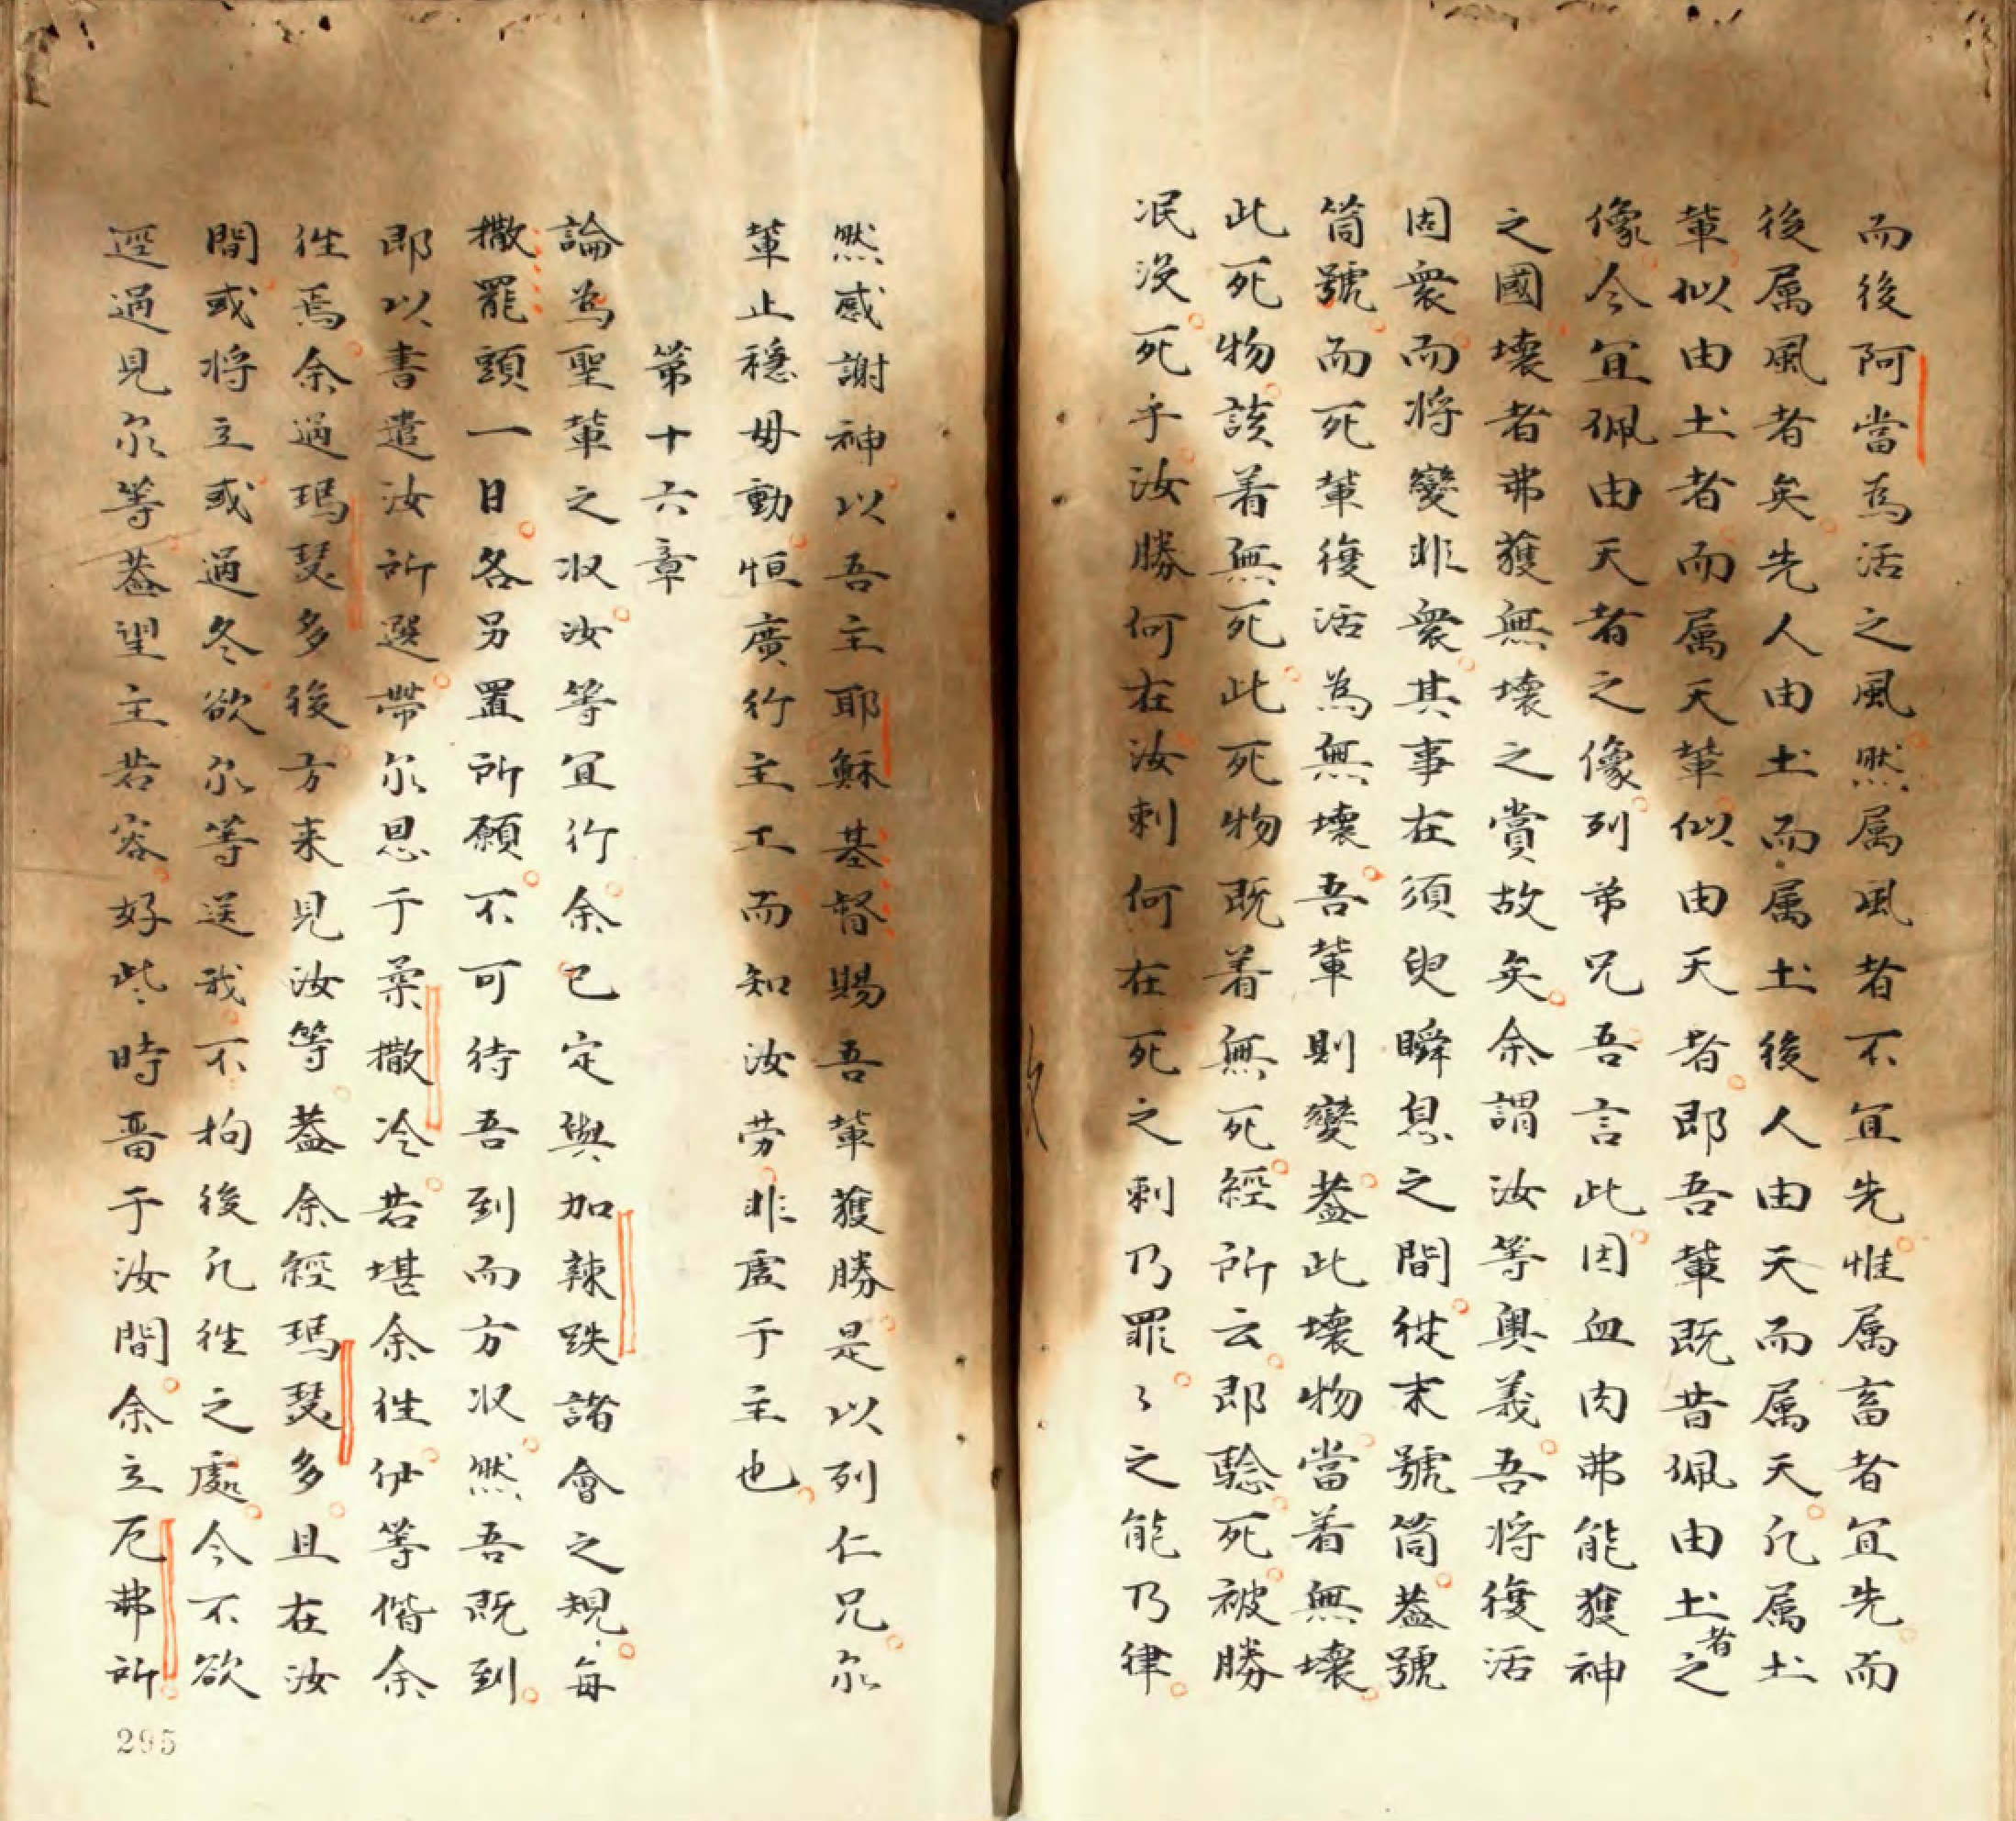 而後阿當為活之風然属風者不宜先惟属畜者宜先而
後属風者矣先人由土而属土後人由天而属天凢属土
軰似由土者而属天軰似由天者即吾軰既昔佩由土者之
像今宜佩由天者之像列弟兄吾言此因血肉弗能獲神
之國壊者弗獲無壊之賞故矣余謂汝等奧義吾将復活
固衆而将變非衆其事在須臾瞬息之間從末號筒葢號
筒號而死軰復活為無壊吾軰則變葢此壊物當着無壊
此死物該着無死此死物既着無死經所云即騐死被勝
泯没死乎汝勝何在汝刺何在死之刺乃罪〻之能乃律
然感謝神以吾主耶穌基督賜吾軰獲勝是以列仁兄尔
軰止穏毋動恒廣行主工而知汝劳非虛于主也
第十六章
論為聖軰之収汝等宜行余已定與加辣跌諸會之規每
撒罷頭一日各另置所願不可待吾到而方収然吾既到
即以書遣汝所選帶尔恩于柔撒冷若堪余徃伊等偕余
徃焉余過瑪瑟多後方来見汝等葢余經瑪瑟多且在汝
間或将立或過冬欲尔等送我不拘後凢徃之處今不欲
逕過見尔等葢望主若容好些時畱于汝間余立厄弗所
295